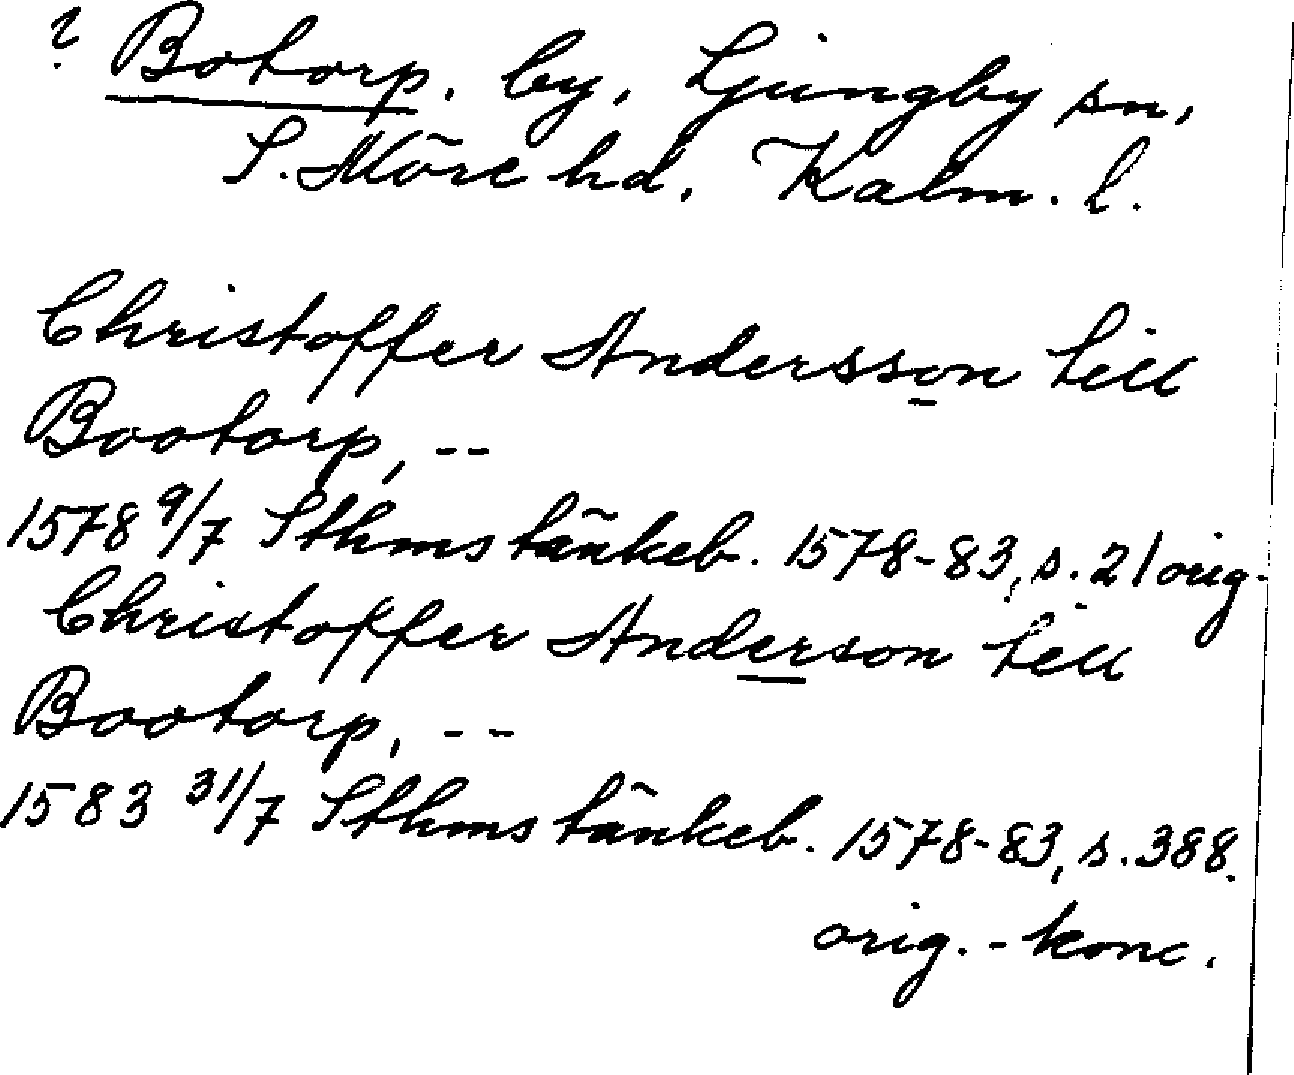 ? Botorp. by, Ljungby sn,
S. Möre hd. Kalm. l.
Christoffer Andersson till
Bootorp, --
1578 9/7 Sthms tänkeb. 1578-83, s. 21 orig.
Christoffer Anderson till
Bootorp, --
1583 31/7 Sthms tänkeb. 1578-83, s. 388.
orig. - konc.